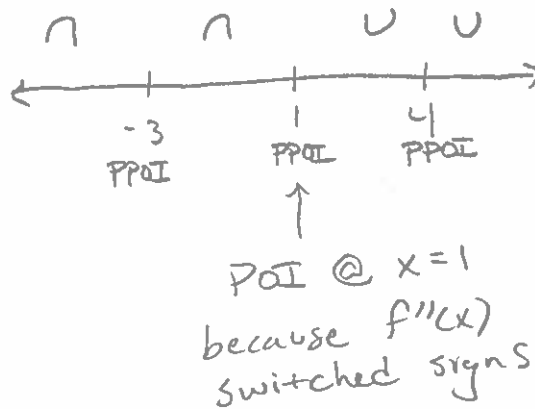 ∩ ∩ ∪ ∪
-3 1 4
PPOI PPOI PPOI
POI @ x=1
because f''(x)
switched signs